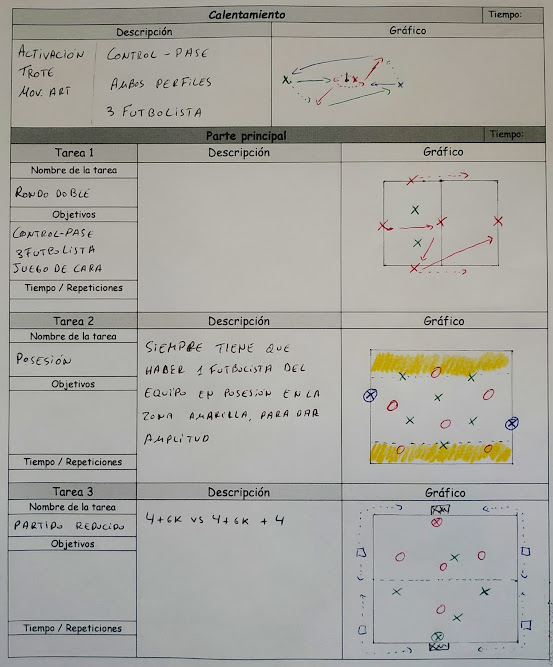 Calentamiento
Tiempo:
Descripción
Gráfico
ACTIVACIÓN
TROTE
MOV. ART
CONTROL - PASE
AMBOS PERFILES
3 FUTBOLISTA
Parte principal
Tiempo:
Tarea 1
Descripción
Gráfico
Nombre de la tarea
RONDO DOBLE
Objetivos
CONTROL-PASE
3 FUTBOLISTA
JUEGO DE CARA
Tiempo / Repeticiones
Tarea 2
Descripción
Gráfico
Nombre de la tarea
POSESIÓN
Objetivos
Tiempo / Repeticiones
SIEMPRE TIENE QUE
HABER 1 FUTBOLISTA DEL
EQUIPO EN POSESIÓN EN LA
ZONA AMARILLA, PARA DAR
AMPLITUD
Tarea 3
Descripción
Gráfico
Nombre de la tarea
PARTIDO REDUCIDO
Objetivos
Tiempo / Repeticiones
4+GK VS 4+GK + 4